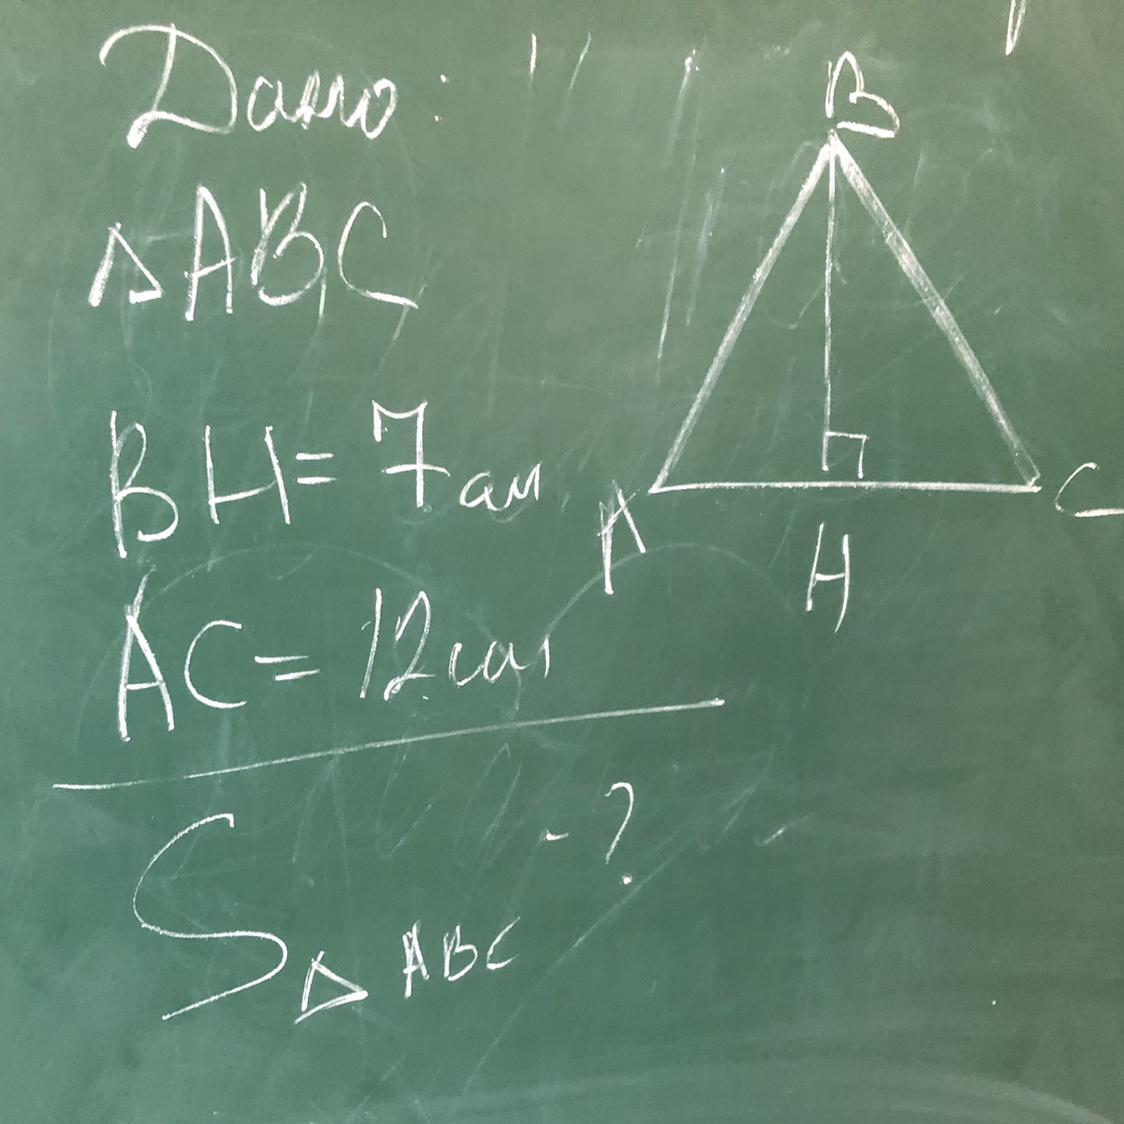 Дано:
△ABC
BH = 7 см
AC = 12 см
S△ABC - ?
B
A
C
H